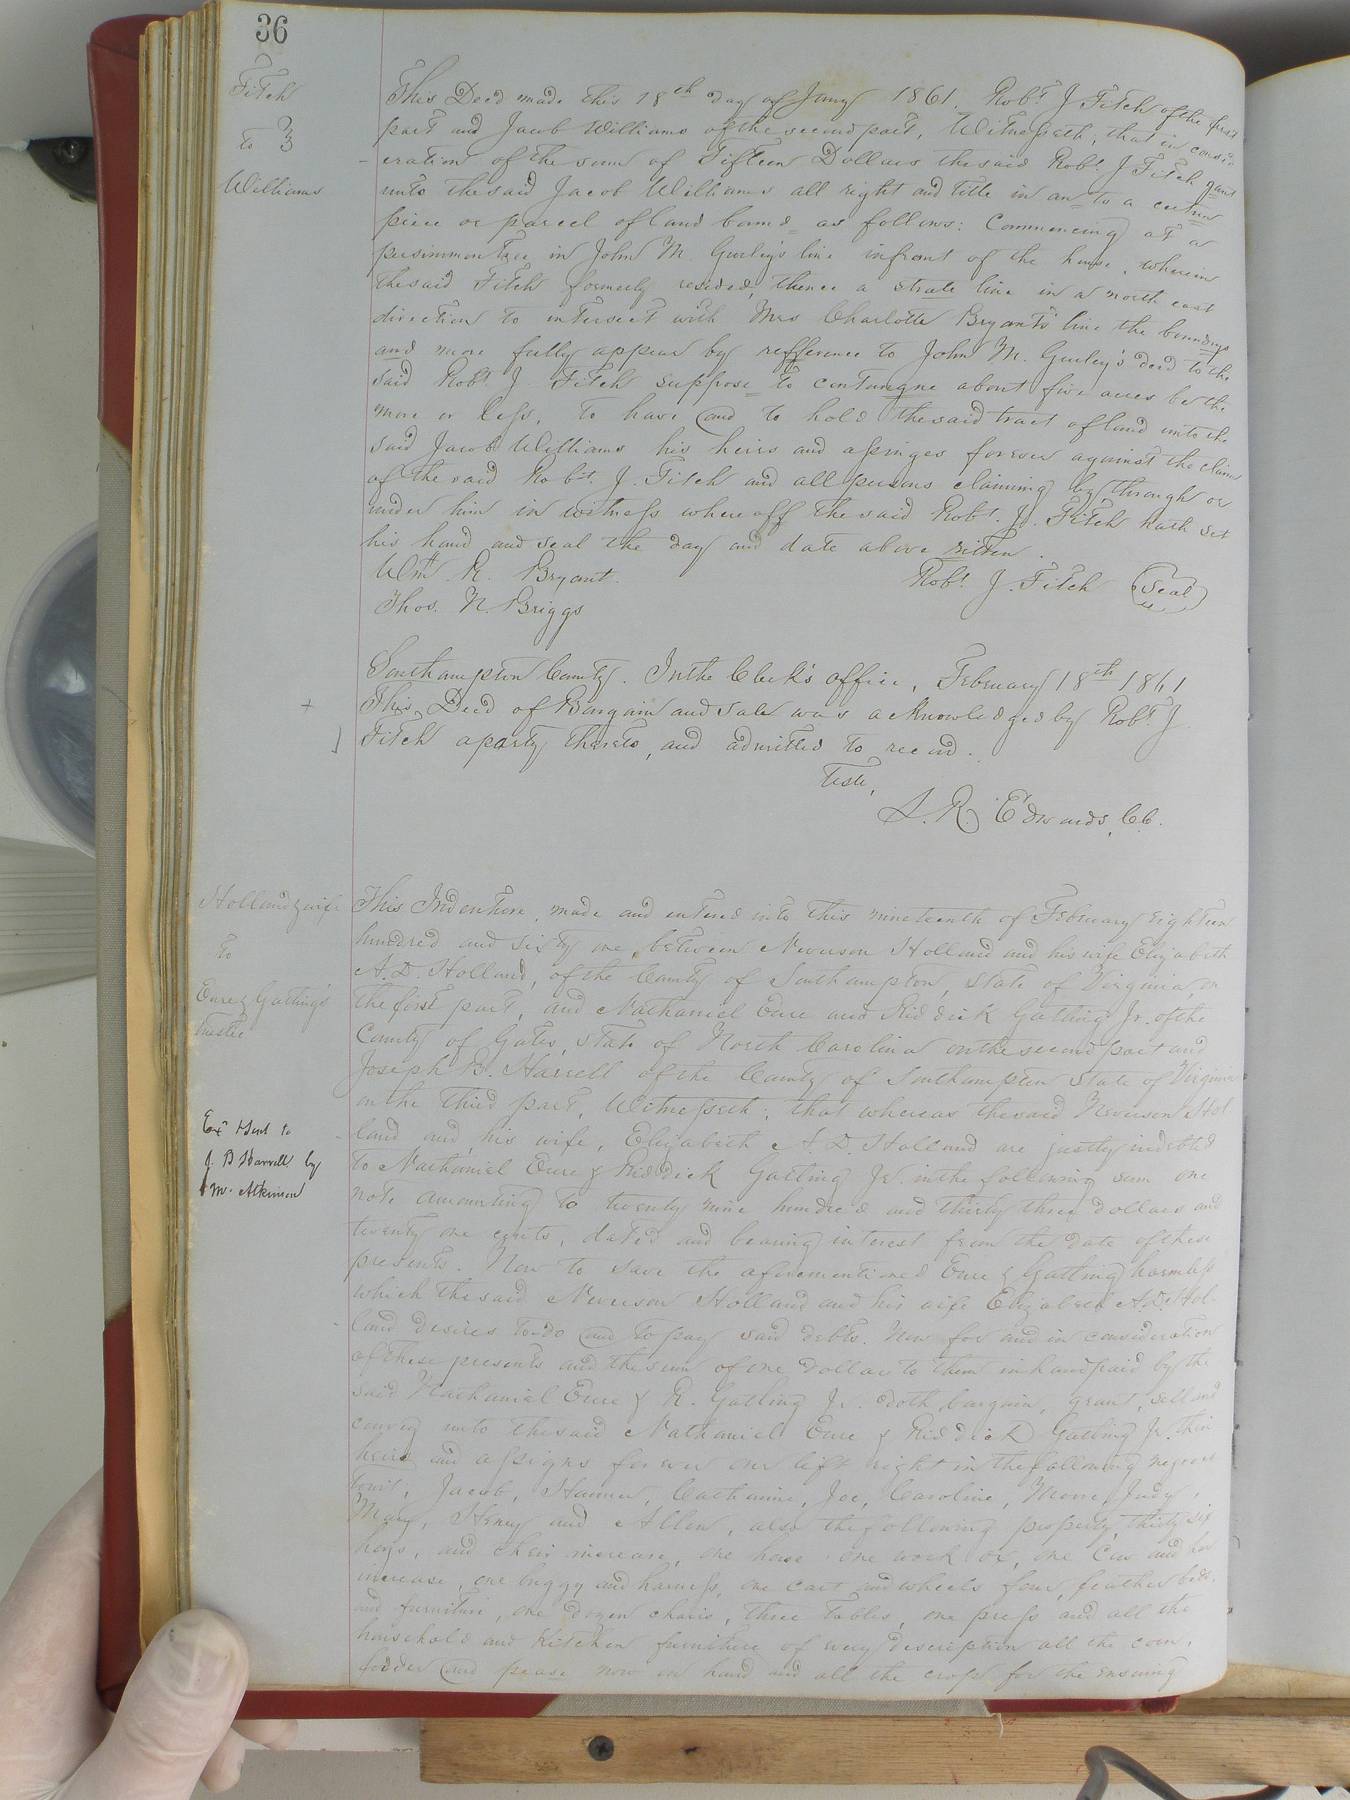 36
Fitch
to
Williams
This Deed made this 18th day of Jany 1861. Robt. J Fitch of the first
part and Jacob Williams of the second part, Witnesseth; that in consid
-eration of the sum of Fifteen Dollars the said Robt. J Fitch gant
unto the said Jacob Williams all right and title in an to a certain
piece or parcel of land bound as follows: Commencing at a
persimmon tree in John M. Gurley's line in front of the house, wherein
the said Fitch formerly resided, thence a strate line in a north east
direction to intersect with Mrs Charlotte Bryant's line the boundings
and more fully appear by refference to John M. Gurley's deed to the
said Robt. J. Fitch suppose to contangne about five acres be the
more or less, To have and to hold the said tract of land unto the
said Jacob Williams his heirs and assinges forever against the claim
of the said Robt. J. Fitch and all persons claiming by, through or
under him in witness whereoff the said Robt. J. Fitch hath set
his hand and seal the day and date above ritten.
Wm. R. Bryant.
Robt. J. Fitch (Seal)
Thos. N. Briggs
Southampton County. In the Clerk's office, February 18th 1861
+ This Deed of Bargain and Sale was acknowledged by Robt. J
Fitch a party thereto, and admitted to record.
Teste,
L. R. Edwards, CC.
Holland & wife
to
Eure & Gatling's
trustee
Exd & sent to
J. B Harrell by
M. Atkinson
This Indenture, made and entered into this nineteenth of February Eighteen
hundred and sixty one, between Neverson Holland and his wife Elizabeth
A. D. Holland, of the County of Southampton, State of Virginia, on
the first part, and Nathaniel Eure and Riddick Gatling Jr. of the
County of Gates, State of North Carolina on the second part and
Joseph B. Harrell of the County of Southampton State of Virginia
on the third part, Witnesseth; that whereas the said Neverson Hol
-land and his wife, Elizabeth A. D. Holland are justly indebted
to Nathaniel Eure & Riddick Gatling Jr in the following sum one
note amounting to twenty nine hundred and thirty three dollars and
twenty one cents, dated and bearing interest from the date of these
presents. Now to save the aforementioned Eure & Gatling harmless
which the said Neverson Holland and his wife Elizabeth A. D. Hol-
-land desires to do and to pay said debts. Now for and in consideration
of these presents and the sum of one Dollar to them in hand paid by the
said Nathaniel Eure & R. Gatling Jr. doth bargain, grant, sell and
convey unto the said Nathaniel Eure & Riddick Gatling Jr. their
heirs and assigns forever our left right in the following negroes
towit, Jacob, Hanner, Catharine, Joe, Caroline, Moore, Judy,
Mary, Henry and Allen, also the following property, thirty six
hogs, and their increase, one horse one work ox, one Cow and her
increase, one buggy and harness, one cart and wheels four feather beds
and furniture, one dozen chairs, three tables, one press and all the
household and kitchen furniture of every description all the corn,
fodder and pease now on hand and all the crops for the ensuing